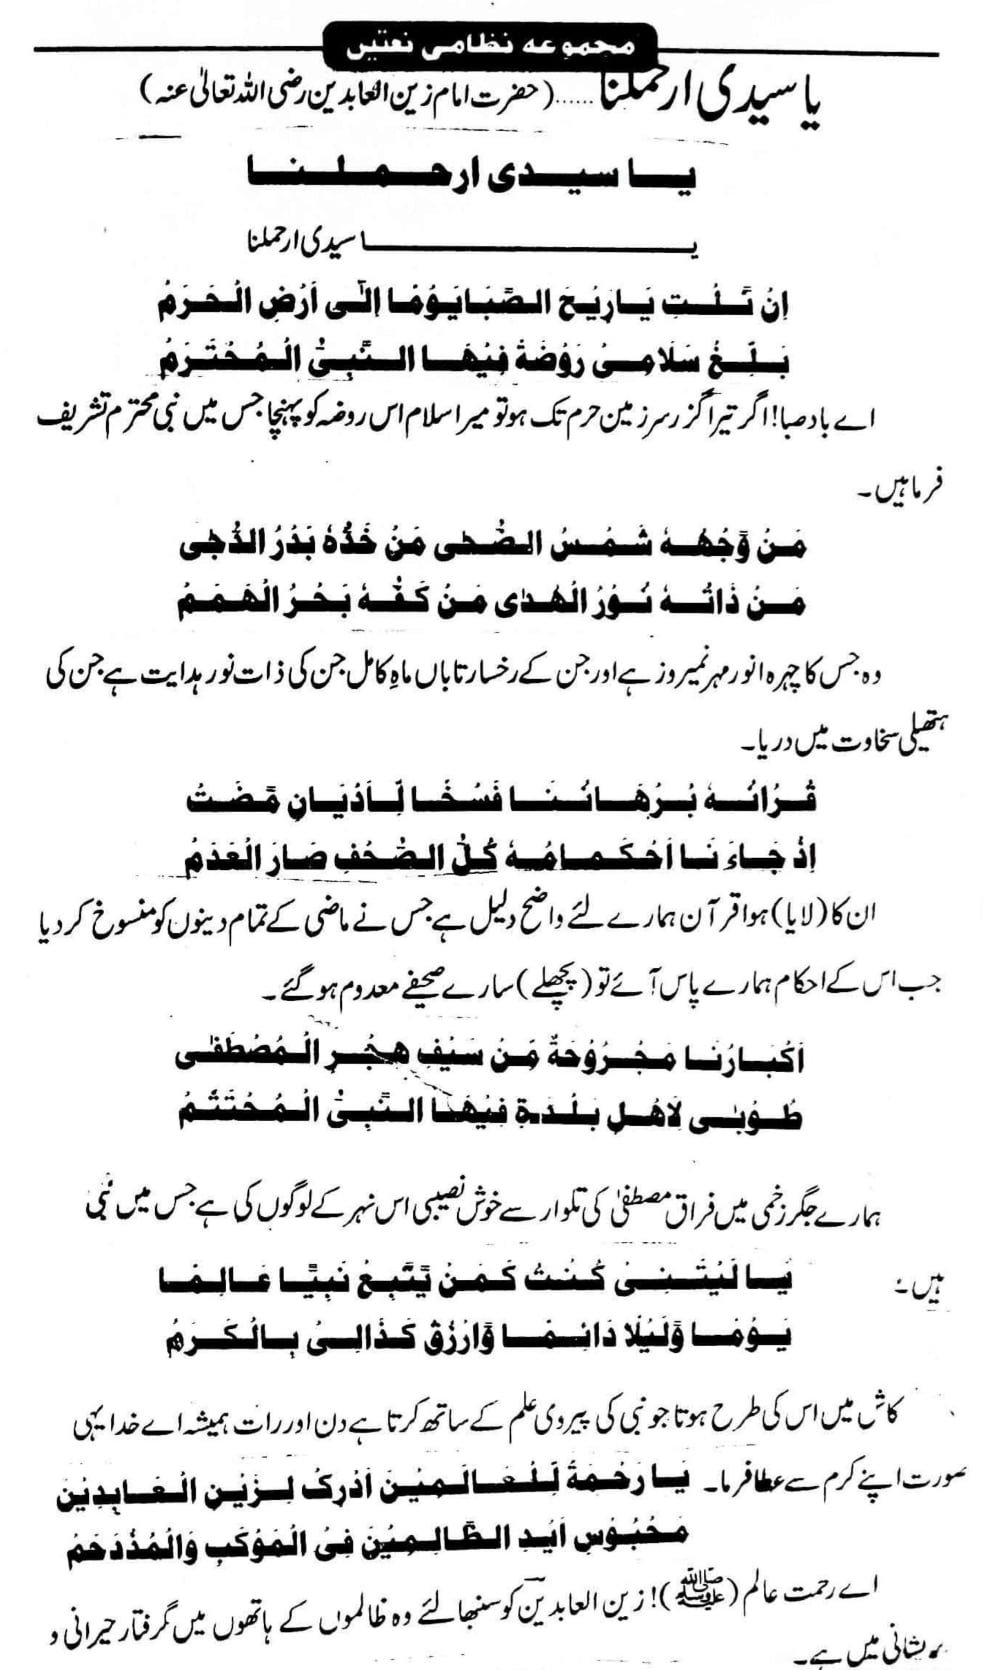 مجموعہ نظامی نعتیں
یا سیدی ارحملنا......(حضرت امام زین العابدین رضی اللہ تعالیٰ عنہ)
یا سیدی ارحملنا
یا سیدی ارحملنا
اِنْ نَّلْتِ یَارِیْحَ الصَّبَایَوْمًا اِلٰی اَرْضِ الْحَرَمْ
بَلِّغْ سَلَامِیْ رَوْضَةً فِیْهَا النَّبِیُّ الْمُحْتَرَمْ
اے بادصبا! اگر تیرا گزر سرزمین حرم تک ہو تو میرا سلام اس روضہ کو پہنچا جس میں نبی محترم تشریف
فرما ہیں۔
مَنْ وَّجْهُهٗ شَمْسُ الضُّحٰی مَنْ خَدُّهٗ بَدْرُ الدُّجٰی
مَنْ ذَاتُهٗ نُوْرُ الْهُدٰی مَنْ كَفُّهٗ بَحْرُ الْهَمَمْ
وہ جس کا چہرہ انور مہر نمیروز ہے اور جن کے رخسار تاباں ماہِ کامل جن کی ذات نور ہدایت ہے جن کی
ہتھیلی سخاوت میں دریا۔
قُرْاٰنُهٗ بُرْهَانُنَا فَسْخًا لِّاَدْیَانِ مَّضَتْ
اِذْ جَاءَ نَا اَحْكَامُهٗ كُلُّ الصُّحُفِ صَارَ الْعَدَمْ
ان کا (لایا) ہوا قرآن ہمارے لئے واضح دلیل ہے جس نے ماضی کے تمام دینوں کو منسوخ کر دیا
جب اس کے احکام ہمارے پاس آئے تو (پچھلے) سارے صحیفے معدوم ہو گئے۔
اَكْبَارُنَا مَجْرُوْحَةٌ مَنْ سَیْفِ هِجْرِ الْمُصْطَفٰی
طُوْبٰی لِاَهْلِ بَلْدَةٍ فِیْهَا النَّبِیُّ الْمُحْتَتَمْ
ہمارے جگر زخمی ہیں فراق مصطفیٰ کی تلوار سے خوش نصیبی اس نہر کے لوگوں کی ہے جس میں نبی
ہیں۔
یَا لَیْتَنِیْ كُنْتُ كَمَنْ یَّتَّبِعُ نَبِیًّا عَالِمًا
یَوْمًا وَّلَیْلًا دَائِمًا وَّارْزُقْ كَذَالِیْ بِالْكَرَمْ
کاش میں اس کی طرح ہوتا جو نبی کی پیروی علم کے ساتھ کرتا ہے دن اور رات ہمیشہ اے خدا یہی
صورت اپنے کرم سے عطا فرما۔ یَا رَحْمَةً لِّلْعَالَمِیْنَ اَدْرِكْ لِزَیْنِ الْعَابِدِیْنَ
مَحْبُوْسِ اَیْدِ الظَّالِمِیْنَ فِیْ الْمَوْكَبِ وَالْمُذْدَحَمْ
اے رحمت عالم (ﷺ)! زین العابدین کو سنبھالئے وہ ظالموں کے ہاتھوں میں گرفتار حیرانی و
پریشانی میں ہے۔